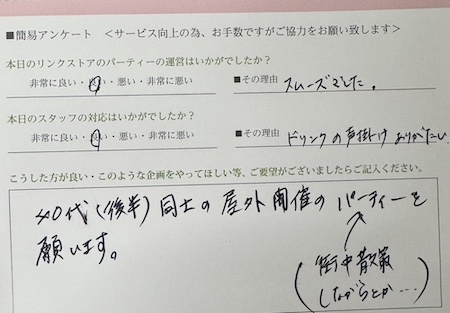 ■簡易アンケート ＜サービス向上の為、お手数ですがご協力をお願い致します＞
本日のリンクストアのパーティーの運営はいかがでしたか？
非常に良い・良い・悪い・非常に悪い ■その理由 スムーズでした。
本日のスタッフの対応はいかがでしたか？
非常に良い・良い・悪い・非常に悪い ■その理由 ドリンクの声掛けありがたい
こうした方が良い・このような企画をやってほしい等、ご要望がございましたらご記入ください。
40代(後半)同士の屋外開催のパーティーを
願います。
(街中散策
しながらとか…)